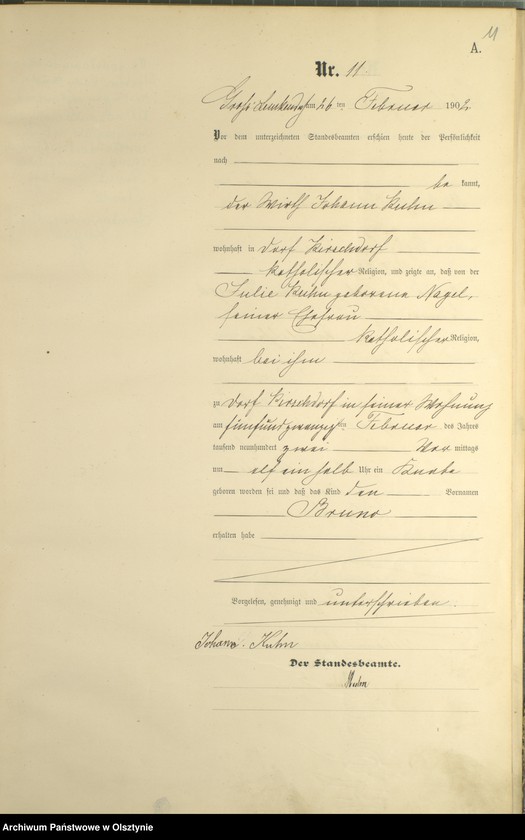 11
A.
Nr. 11
am 26 ten Februar 1902
Vor dem unterzeichneten Standesbeamten erschien heute der Persönlichkeit
nach
be kannt,
der Wirth Johann Kuhn
wohnhaft in Dorf Kirschdorf
katholischer Religion, und zeigte an, daß von der
Julie Kuhn geborene Nagel,
seiner Ehefrau
katholischer Religion,
wohnhaft bei ihm
zu Dorf Kirschdorf in seiner Wohnung
am fünfundzwanzig ten Februar des Jahres
tausend neunhundert zwei Vor mittags
um elf ein halb Uhr ein Knabe
geboren worden sei und daß das Kind den Vornamen
Bruno
erhalten habe
Vorgelesen, genehmigt und unterschrieben.
Johann Kuhn
Der Standesbeamte.
Archiwum Państwowe w Olsztynie